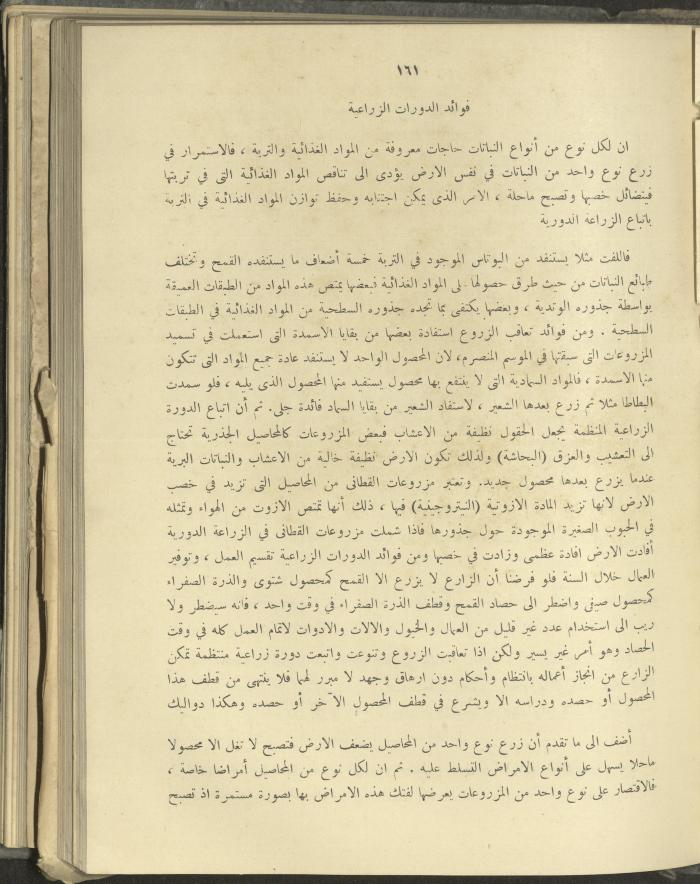 ١٦١
فوائد الدورات الزراعية
ان لكل نوع من أنواع النباتات حاجات معروفة من المواد الغذائية والتربة ، فالاستمرار في
زرع نوع واحد من النباتات في نفس الارض يؤدى الى تناقص المواد الغذائية التى في تربتها
فيتضائل خصبها وتصبح ماحلة ، الامر الذى يمكن اجتنابه وحفظ توازن المواد الغذائية في التربة
باتباع الزراعة الدورية
فاللفت مثلا يستنفد من البوتاس الموجود في التربة خمسة أضعاف ما يستنفده القمح وتختلف
طبائع النباتات من حيث طرق حصولها على المواد الغذائية فبعضها يمتص هذه المواد من الطبقات العميقة
بواسطة جذوره الوتدية ، وبعضها يكتفى بما تجده جذوره السطحية من المواد الغذائية في الطبقات
السطحية . ومن فوائد تعاقب الزروع استفادة بعضها من بقايا الاسمدة التى استعملت في تسميد
المزروعات التى سبقتها في الموسم المنصرم، لان المحصول الواحد لا يستنفد عادة جميع المواد التى تتكون
منها الاسمدة ، فالمواد السمادية التى لا ينتفع بها محصول يستفيد منها المحصول الذى يليه ، فلو سمدت
البطاطا مثلا ثم زرع بعدها الشعير ، لاستفاد الشعير من بقايا السماد فائدة جلى. ثم أن اتباع الدورة
الزراعية المنظمة يجعل الحقول نظيفة من الاعشاب فبعض المزروعات كالمحاصيل الجذرية تحتاج
الى التعشيب والعزق (البحاشة) ولذلك تكون الارض نظيفة خالية من الاعشاب والنباتات البرية
عندما يزرع بعدها محصول جديد. وتعتبر مزروعات القطانى من المحاصيل التى تزيد في خصب
الارض لانها تزيد المادة الازوتية (النيتروجينية) فيها ، ذلك أنها تمتص الازوت من الهواء وتمثله
في الحبوب الصغيرة الموجودة حول جذورها فاذا شملت مزروعات القطانى في الزراعة الدورية
أفادت الارض افادة عظمى وزادت في خصبها ومن فوائد الدورات الزراعية تقسيم العمل ، وتوفير
العمال خلال السنة فلو فرضنا أن الزارع لا يزرع الا القمح كمحصول شتوى والذرة الصفراء
كمحصول صيفى واضطر الى حصاد القمح وقطف الذرة الصفراء في وقت واحد ، فانه سيضطر ولا
ريب الى استخدام عدد غير قليل من العمال والخيول والالات والادوات لاتمام العمل كله في وقت
الحصاد وهو أمر غير يسير ولكن اذا تعاقبت الزروع وتنوعت واتبعت دورة زراعية منتظمة تمكن
الزارع من انجاز أعماله بانتظام وأحكام دون ارهاق وجهد لا مبرر لهما فلا ينتهى من قطف هذا
المحصول أو حصده ودراسه الا ويشرع في قطف المحصول الآخر أو حصده وهكذا دواليك
أضف الى ما تقدم أن زرع نوع واحد من المحاصيل يضعف الارض فتصبح لا تغل الا محصولا
ماحلا يسهل على أنواع الامراض التسلط عليه . ثم ان لكل نوع من المحاصيل أمراضا خاصة ،
فالاقتصار على نوع واحد من المزروعات يعرضها لفتك هذه الامراض بها بصورة مستمرة اذ تصبح